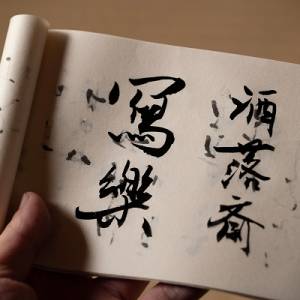 洒落斎
寫樂